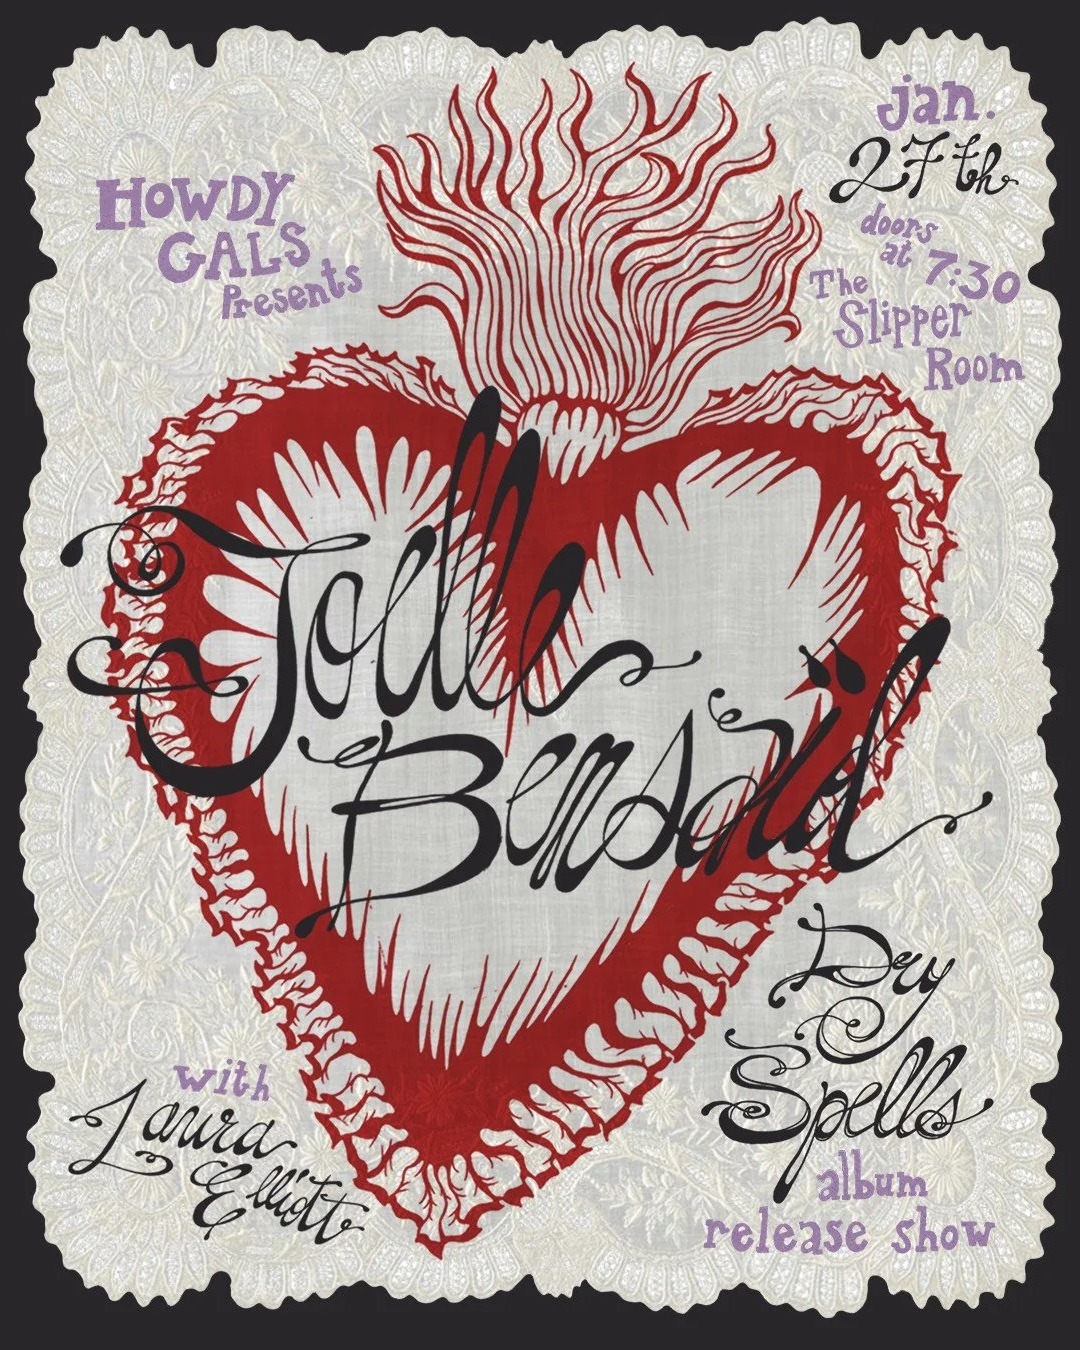 HOWDY
GALS
Presents
jan.
27th
doors
at 7:30
The
Slipper
Room
Joelle
Bensaïd
Dry
Spells
album
release show
with
Laura
Elliott